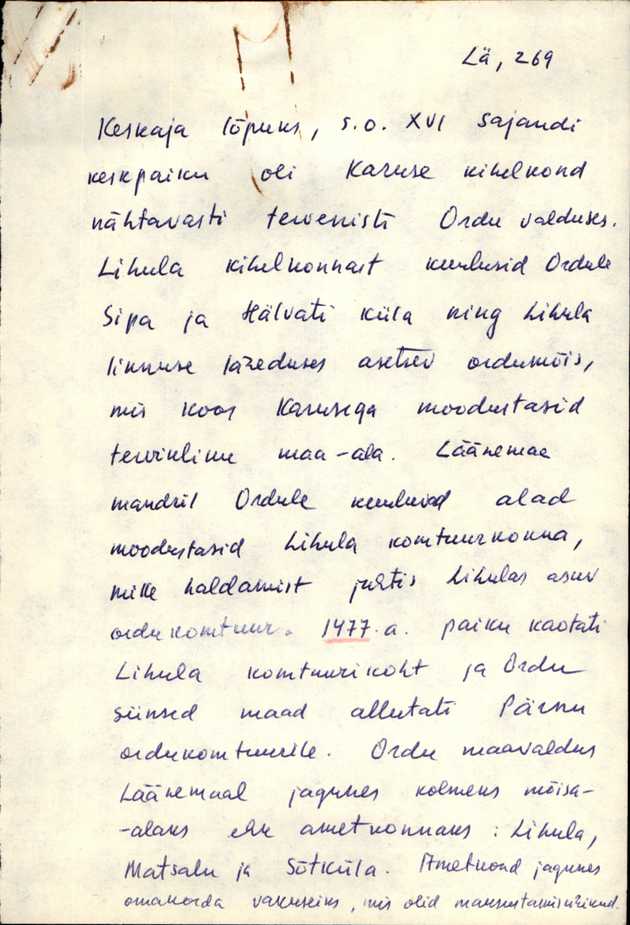 Lä, 269
Keskaja lõpuks, s.o. XVI sajandi
keskpaiku oli Karuse kihelkond
nähtavasti tervenisti Ordu valduses.
Lihula kihelkonnast kuulusid Ordule
Sipa ja Hälvati küla ning Lihula
linnuse läheduses asetsev ordumõis,
mis koos Karusega moodustasid
terviklinu maa-ala. Läänemaa
mandril Ordule kuuluvad alad
moodustasid Lihula komtuurkonna,
mille haldamist juhtis Lihulas asuv
ordukomtuur. 1477.a. paiku kaotati
Lihula komtuurikoht ja Ordu
siinsed maad allutati Pärnu
ordukomtuurile. Ordu maavaldus
Läänemaal jagunes kolmeks mõisa-
-alaks ehk ametkonnaks: Lihula,
Matsalu ja Sõtküla. Ametkond jagunes
omakorda vakuseiks, mis olid maksustamisüksused.